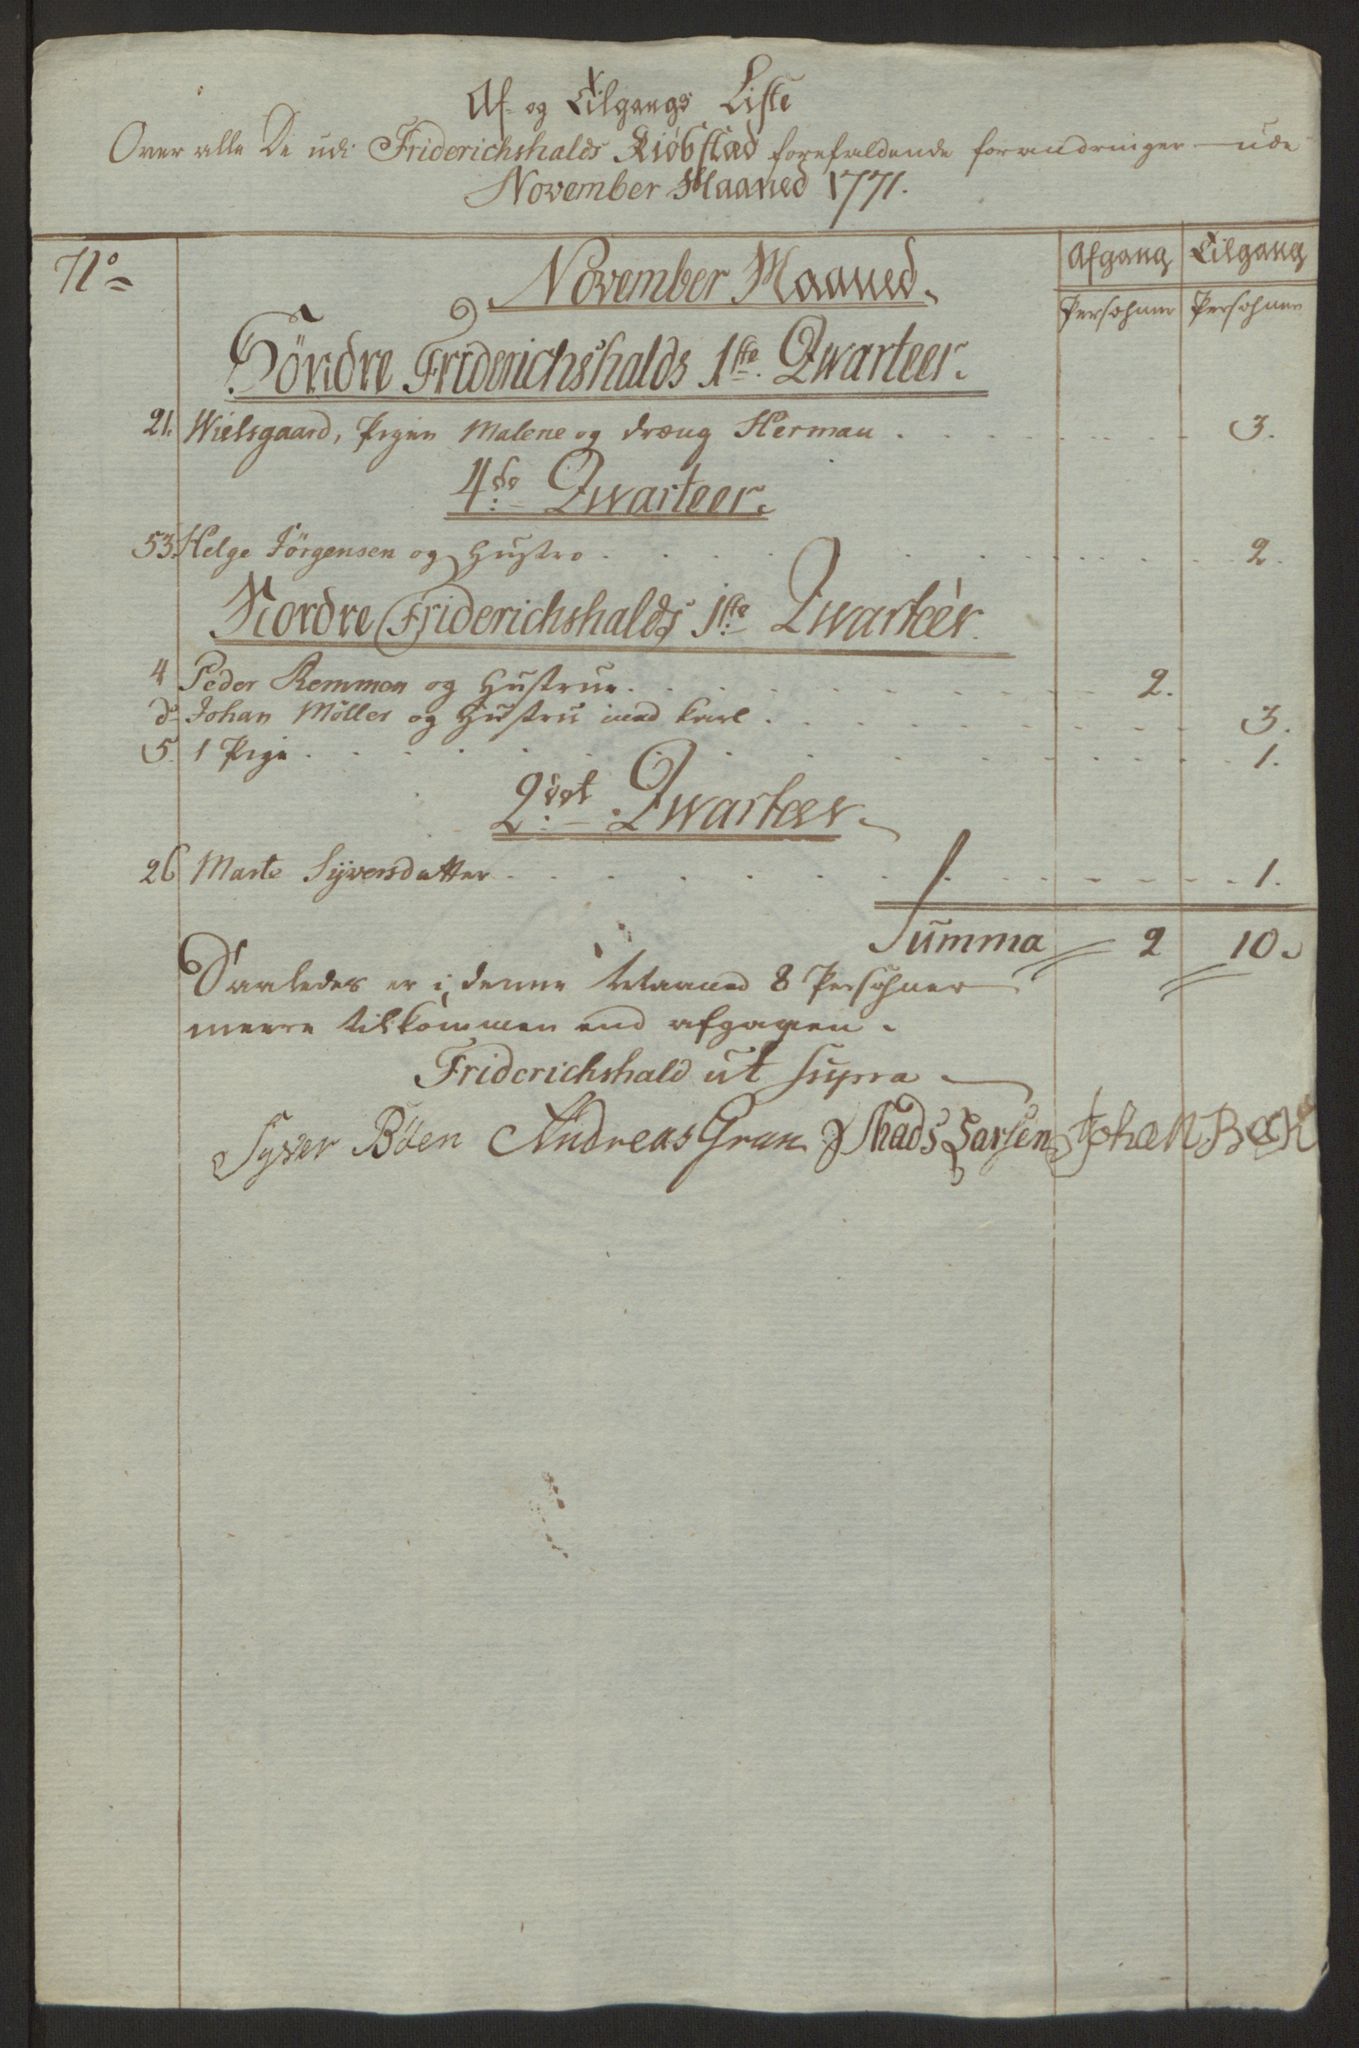 Af- og Tilgangs Liste
Over alle De udi Friderichshalds Kiöbstæd forefaldende forandringer udi
November Maaned 1771.
No
November Maaned.
Afgang Tilgang
Persohner Persohner
Söndre Friderichshalds 1ste Qwarteer.
21. Wielsgaard, Pigen Malene og dræng Herman 3.
4de Qwarteer.
53. Helge Jörgensen og Hustro 2.
Nordre Friderichshalds 1ste Qwarteer.
4 Peder Remmen og Hustrue 2.
do Johan Möller og Hustru med 3.
5. 1 Pige 1.
2det Qwarteer.
26 Marte Syversdatter 1.
Summa 2 10.
Saaledes er i denne Maaned 8 Persohner
meere tilkommen end afgagen.
Friderichshald ut supra
Syver Böen Andreas Gran Mads Larsen Johan Beck